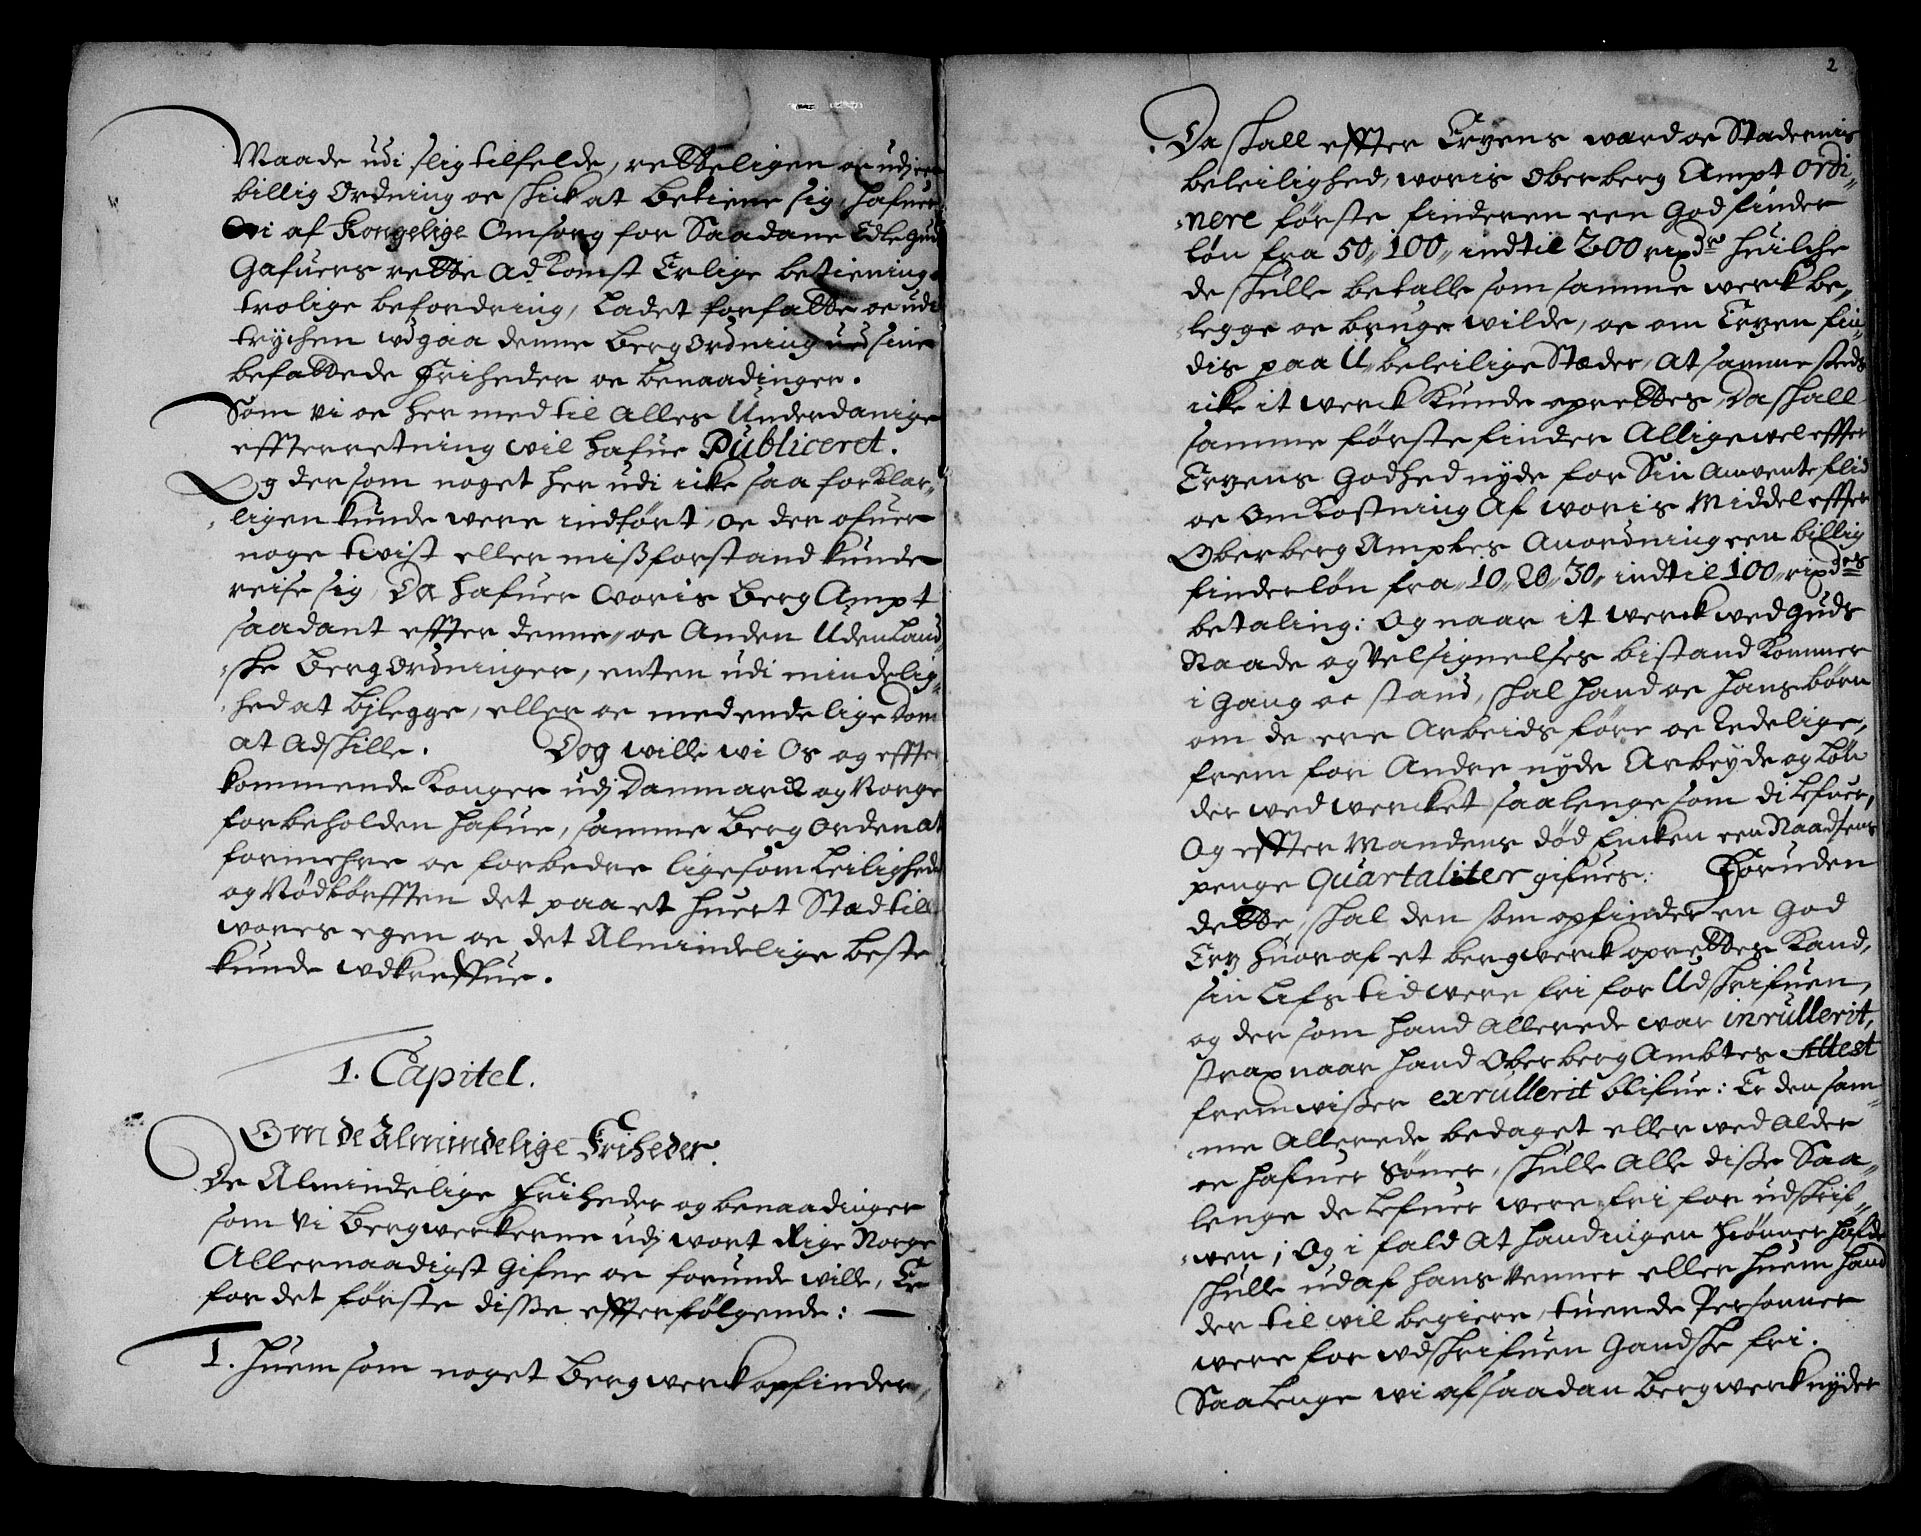 Maade udi slig tilfelde, retteligen oc udj een
billig Ordning oc skick at betiene sig, hafuer
Vi af Kongelige Omsorg for Saadane Edle Gud
Gafuers rette Ad Komst Erlige betiening
trolige befordring, Ladet forfatte oc udi
trychen udgaa denne Berg Ordning med sine
befattede Friheder oc benaadinger.
Som Vi oc her med til Alles Underdanige
effterretning wil hafue Publiceret.
Og der som noget her udi icke saa forklar„
ligen kunde were indført, oc der ofuer
noge twist eller misforstand kunde
reise sig, Da hafuer Woris Berg Ampt
saadant effter denne, oc Anden Uden Land„
ske Berg Ordninger, enten udi mindelig„
hed at bjlegge, eller oc med endelige Dom
at Adskille. Dog wille wi Os og effter
kommende Konger udj Danmarck og Norge
forbeholden hafue, samme Berg Orden at
formehre oc forbedre ligesom Leilighed
og Nødtørfften det paa et huert Stæd till
wores egen oc det Almindelige beste
kunde udkreffue.
1. Capitel.
Om de Almindelige Friheder.
De Almindelige Friheder og benaadinger
som Vi Bergwerkerne udj wort Rige Norge
Allernaadigst Gifue oc forunde wille, Er
for det første disse effterfølgende: —
1. Huem som noget Bergwerck opfinder„
2
Da skall effter Ertzens werd oc Stædernis
beleilighed, woris Oberberg Ampt ordi„
nere første finderen een God finder
løn fra 50„ 100„ indtil 200 rixdr huilche
de skulle betalle som samme werck be„
legge oc bruge wilde, oc om Ertzen fin„
dis paa U„beleilige Stæder, At samme steds
icke it werck Kunde oprettes, Da skall
samme første finder Alligewel effter
Ertzens Godhed nyde for Sin Anvente flid
oc Omkostning Af woris Middel effter
Oberberg Amptes Anordning een billig
finderløn fra„ 10„ 20„ 30„ indtil 100„ rixdrs
betaling: Og naar it werck wed Guds
Naade og Velsignelses bistand Kommer
i Gang oc stand, skal hand oc hans børn
om de ere Arbeids føre oc Redelige,
frem for Andre nyde Arbeyde og Løn
der wed wercket saalenge som di Lefuer,
Og effter Mandens død Encken een Naadsens
penge Quartaliter gifues: Foruden
dette, skal den som opfinder en God
Ertz huoraf et bergwerck oprettes Kand,
sin Lifs tid were fri for Udskrifuen,
og der som hand Allerede war inrullerit,
strax naar hand Oberberg Ambtes Attest
fremwiser exrullerit blifue: Er den sam„
me Allerede bedaget eller wed Alder
oc hafuer Sønner, skulle Alle disse Saa„
lenge de Lefuer were fri for udskrif„
wen; Og i fald At hand ingen Sønner hafde
skulle udaf hans Venner eller huem hand
der til wil begiere, tuende Personner
were for udskrifuen Gandske fri.
Saa Lenge wi af saadan Bergwerck nyder